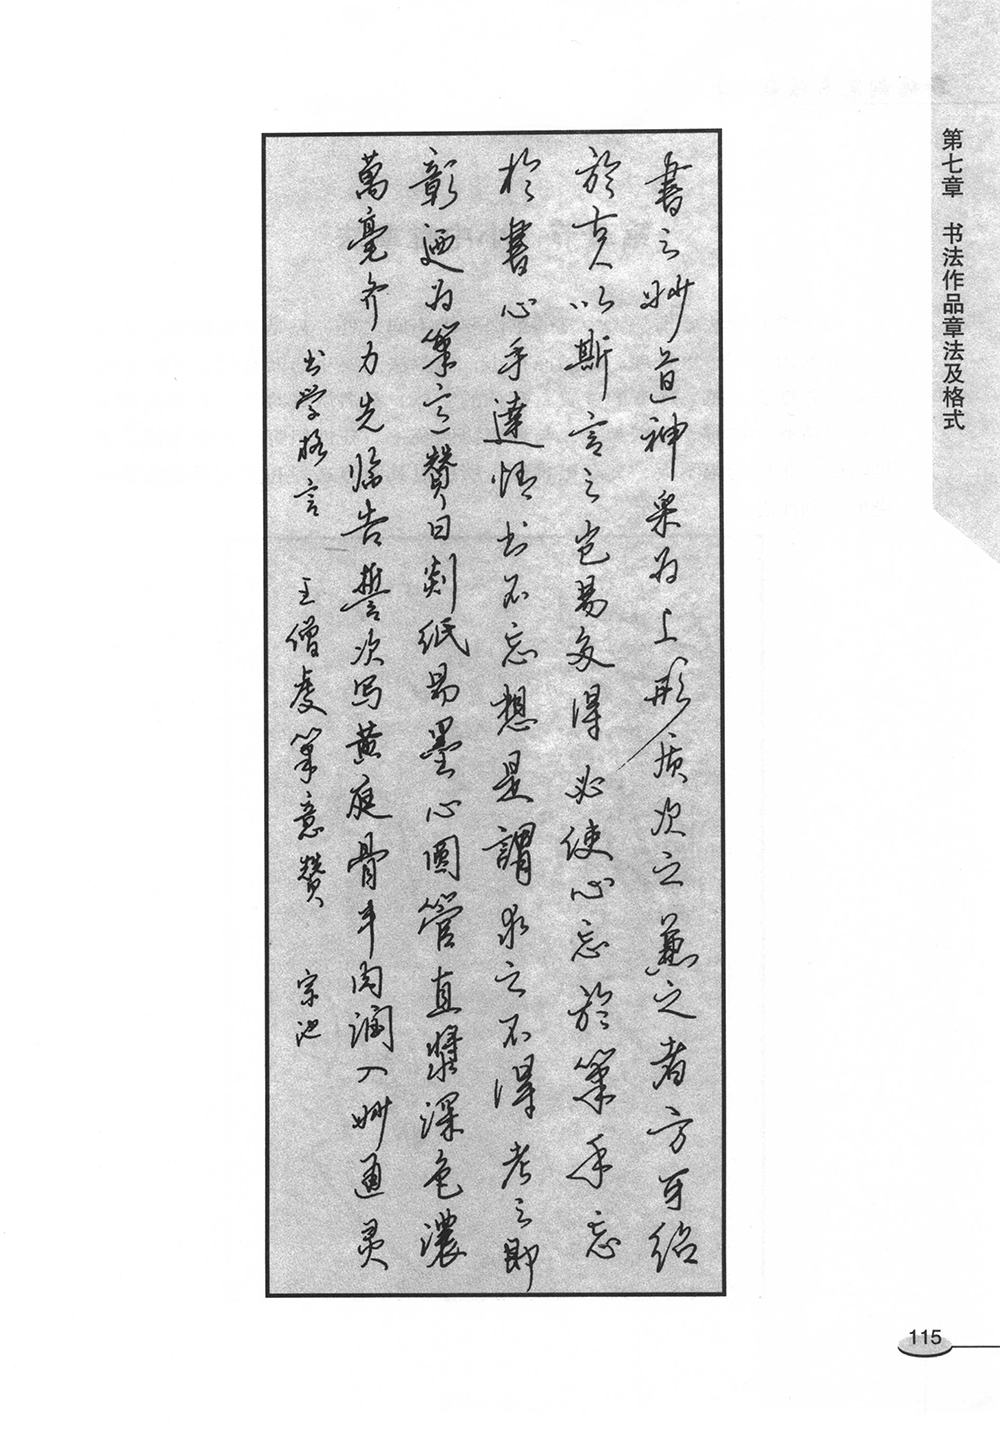 第七章 书法作品章法及格式
書之妙道神采为上形质次之兼之者方可绍
於古人以斯言之岂易多得必使心忘於筆手忘
於書心手達情书不忘想是謂求之不得考之即
彰迺为筆意贊曰剡纸易墨心圓管直漿深色濃
萬毫齐力先临告誓次写黄庭骨丰肉润入妙通灵
书学格言 王僧虔筆意赞 宗池
115